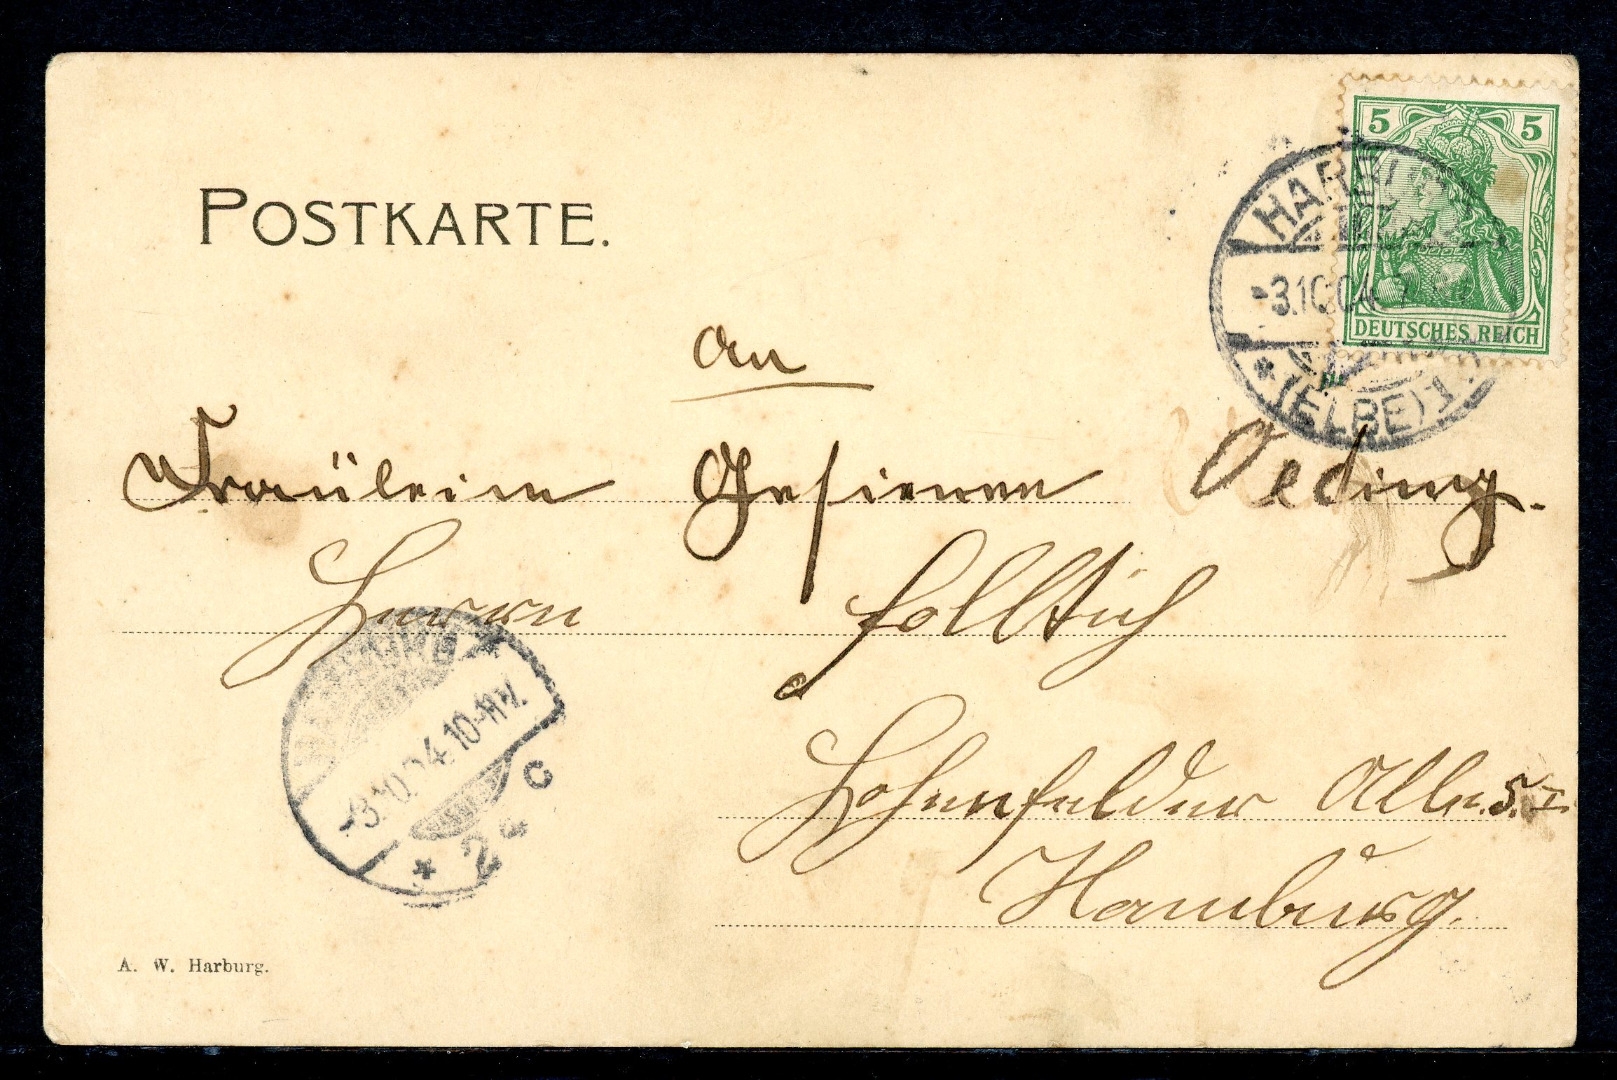 POSTKARTE.
5 5
DEUTSCHES REICH
HARBURG
-3.10.04. 7
* (ELBE) 1.
An
Fräulein Gesienen Oeding.
Herrn
Hohenfelder Allee 5. I.
Hamburg.
HAMBURG *
-3.10.04. 10-11 V.
* 2 a c
A. W. Harburg.